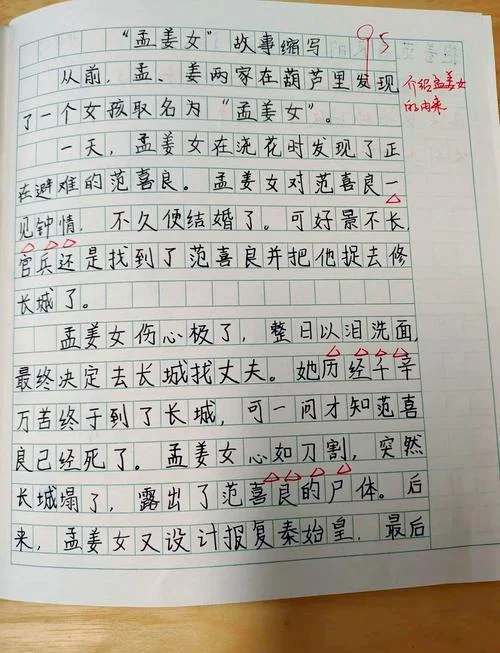 “孟姜女”故事缩写
95
从前，孟、姜两家在葫芦里发现
了一个女孩取名为“孟姜女”。
介绍孟姜女
的由来
一天，孟姜女在浇花时发现了正
在避难的范喜良。孟姜女对范喜良一
见钟情，不久便结婚了。可好景不长，
官兵还是找到了范喜良并把他捉去修
长城了。
孟姜女伤心极了，整日以泪洗面，
最终决定去长城找丈夫。她历经千辛
万苦终于到了长城，可一问才知范喜
良已经死了。孟姜女心如刀割，突然
长城塌了，露出了范喜良的尸体。后
来，孟姜女又设计报复秦始皇，最后